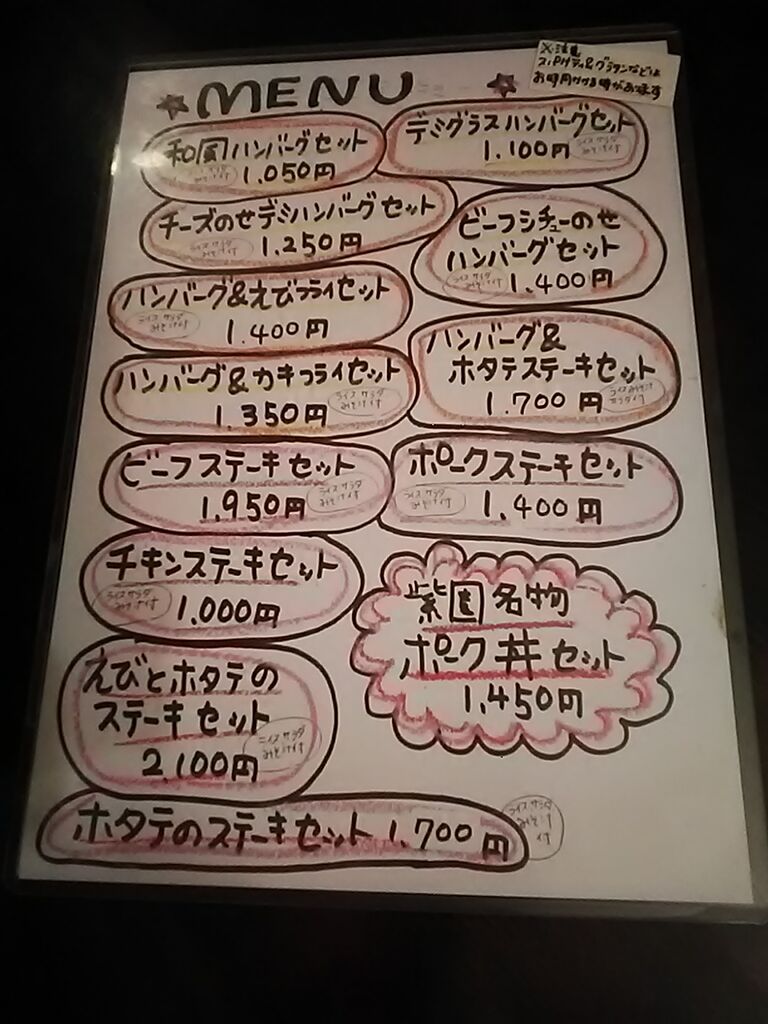 MENU
※注意
グラタンなどは
お時間かかる時があります
和風ハンバーグセット
1.050円
デミグラスハンバーグセット
1.100円
ライス サラダ
みそ汁付
チーズのせデミハンバーグセット
1.250円
ライス サラダ
みそ汁付
ビーフシチューのせ
ハンバーグセット
1.400円
ライス サラダ
みそ汁付
ハンバーグ&えびフライセット
1.400円
ライス サラダ
みそ汁付
ハンバーグ&
ホタテステーキセット
1.700円
ハンバーグ&カキフライセット
1.350円
ライス サラダ
みそ汁付
ビーフステーキセット
1.950円
ライス サラダ
みそ汁付
ポークステーキセット
1.400円
ライス サラダ
みそ汁付
チキンステーキセット
1.000円
ライス サラダ
みそ汁付
紫園名物
ポーク丼セット
1.450円
えびとホタテの
ステーキセット
2.100円
ライス サラダ
みそ汁付
ホタテのステーキセット 1.700円
ライス サラダ
みそ汁
付